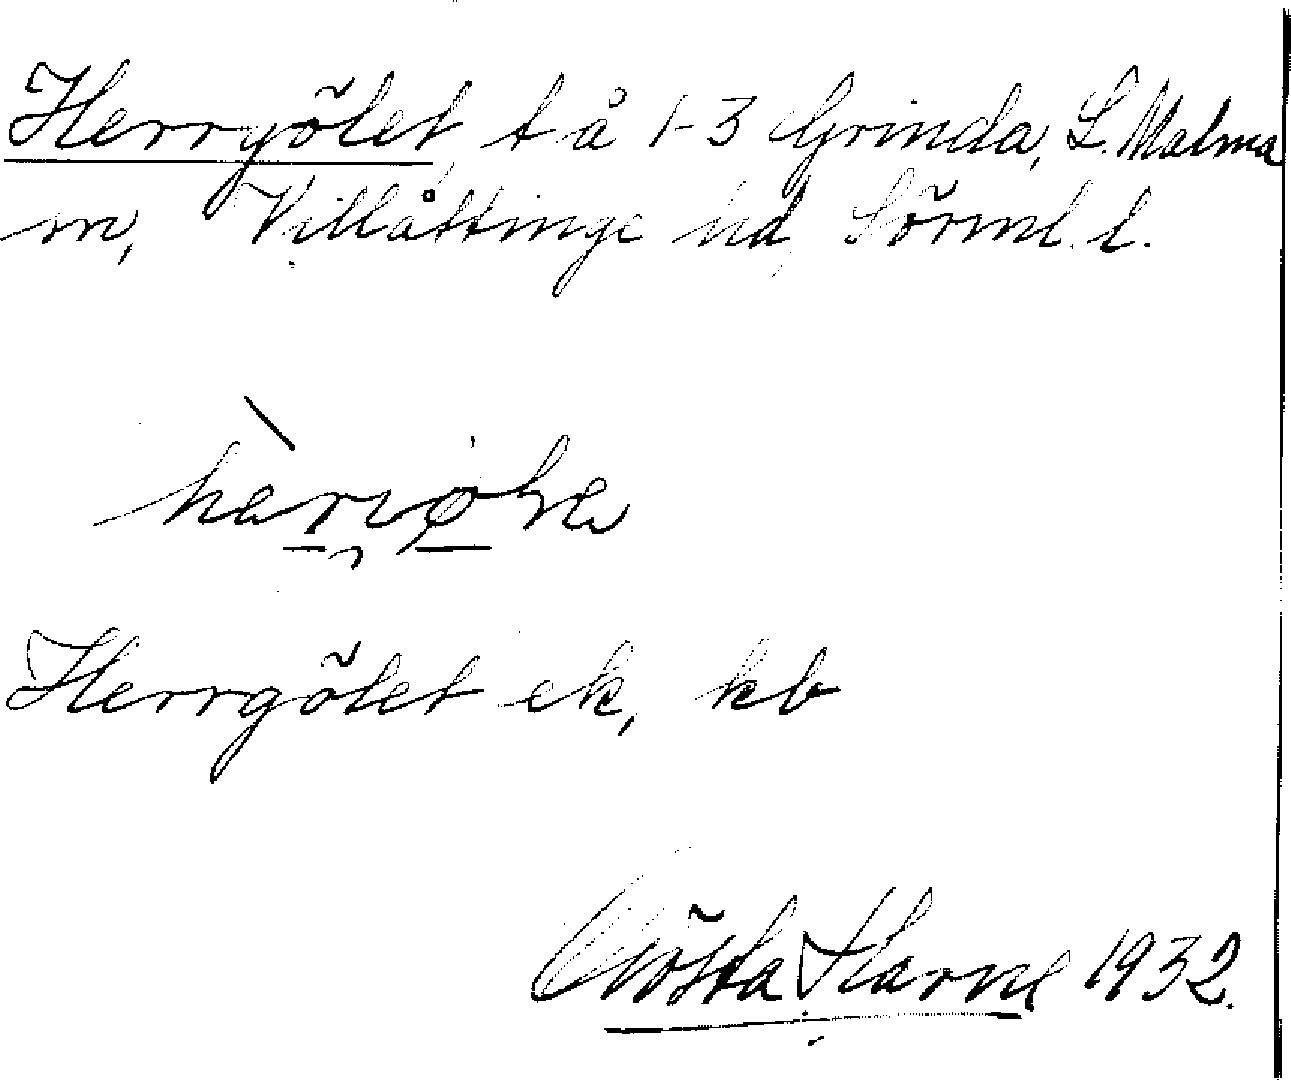 Herrgölet, t å 1-3 Grinda, L. Malma
sn, Villåttinge hd, Sörml. l.
Herrgölet ek, kb
Gösta Harne 1932.